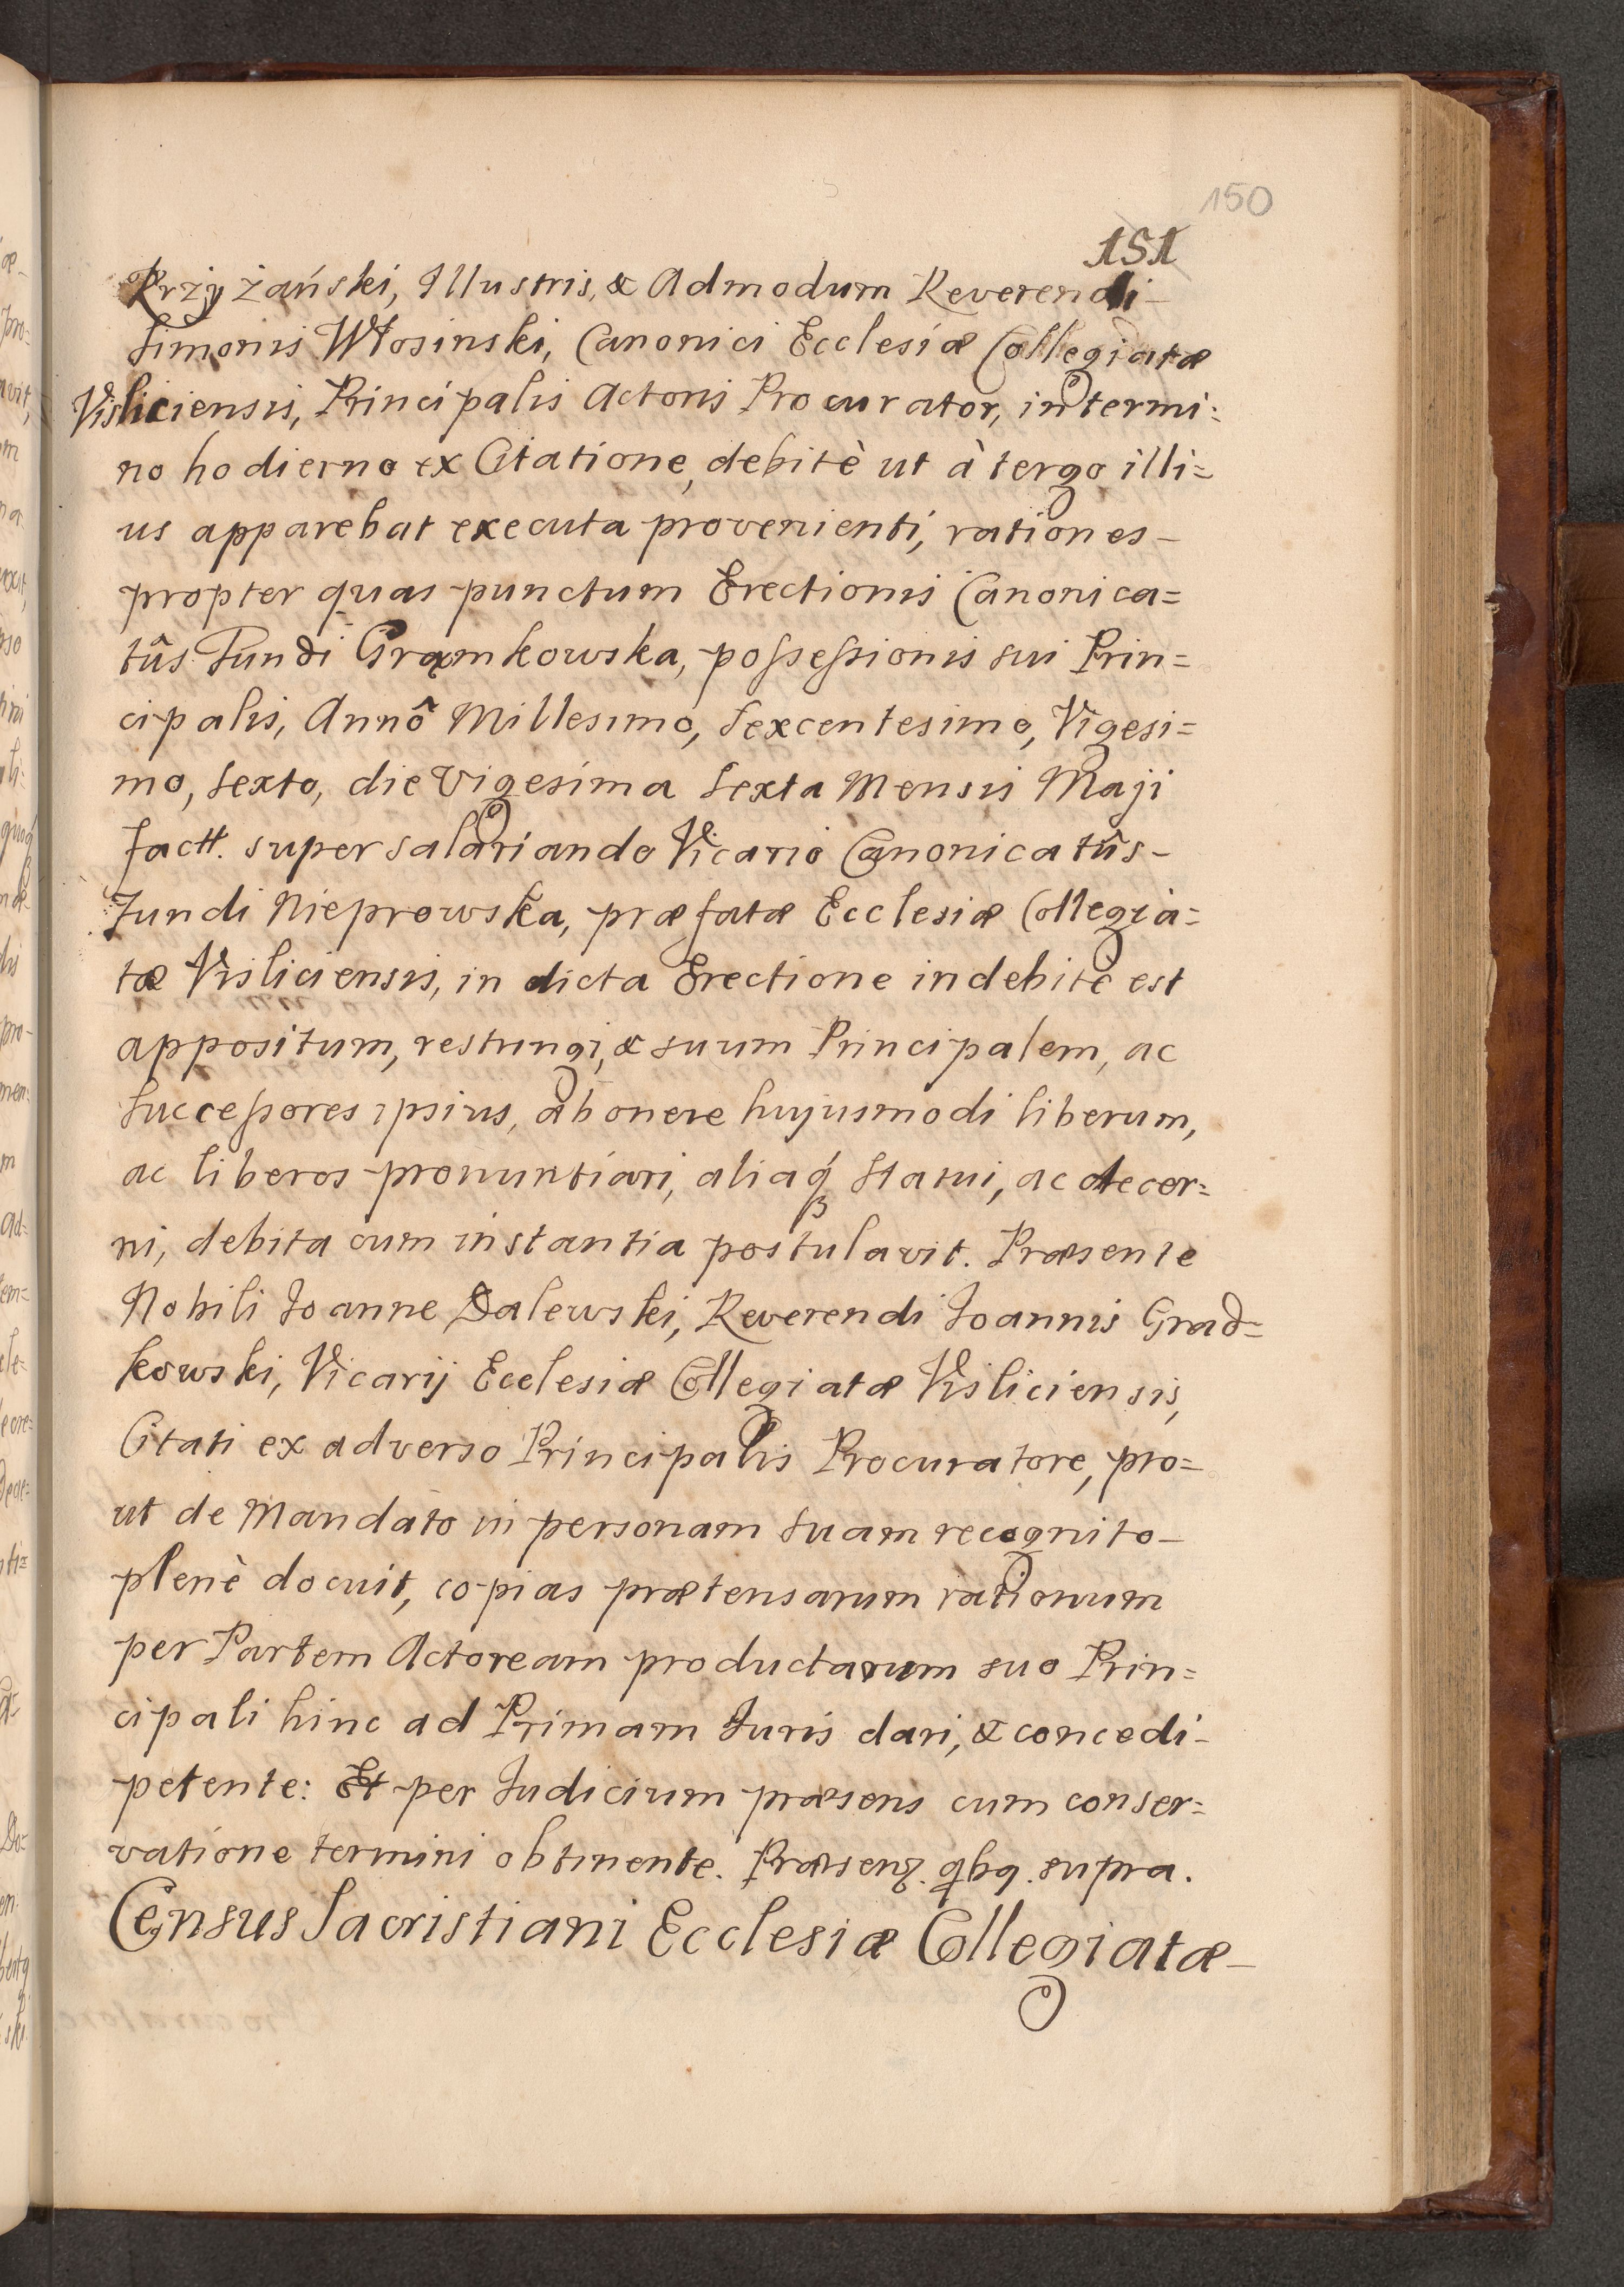 150
151
Krzyżański, Illustris, & Admodum Reverendi-
Simonis Włosinski, Canonici Ecclesiæ Collegiatæ
Visliciensis, Principalis Actoris Procurator, in termi:
no hodierno ex Citatione, debitè ut à tergo illi=
us apparebat executa provenienti, rationes-
propter quas punctum Erectionis Canonica=
tûs Fundi Grąmkowska, possessionis sui Prin=
cipalis, Annô Millesimo, Sexcentesimo, Vigesi=
mo, Sexto, die Vigesima Sexta Mensis Maji
factt. super salariando Vicario Canonicatûs-
Fundi Nieprowska, præfatæ Ecclesiæ Collegia=
tæ Visliciensis, in dicta Erectione indebitè est
appositum, restringi, & suum Principalem, ac
Successores ipsius, ab onere hujusmodi liberum,
ac liberos pronuntiari, aliaq́ Statui, ac decer=
ni, debita cum instantia postulavit. Præsente
Nobili Joanne Dalewski, Reverendi Joannis Grad=
kowski, Vicarij Ecclesiæ Collegiatæ Visliciensis,
Citati ex adverso Principalis Procuratore, pro=
ut de Mandato in personam suam recognito-
plenè docuit, copias prætensarum rationum
per Partem Actoream productarum suo Prin=
cipali hinc ad Primam Juris dari, & concedi-
petente: Et per Judicium præsens cum conser=
vatione termini obtinente. Præsenz. qbq. supra.
Census Sacristiani Ecclesiæ Collegiatæ-